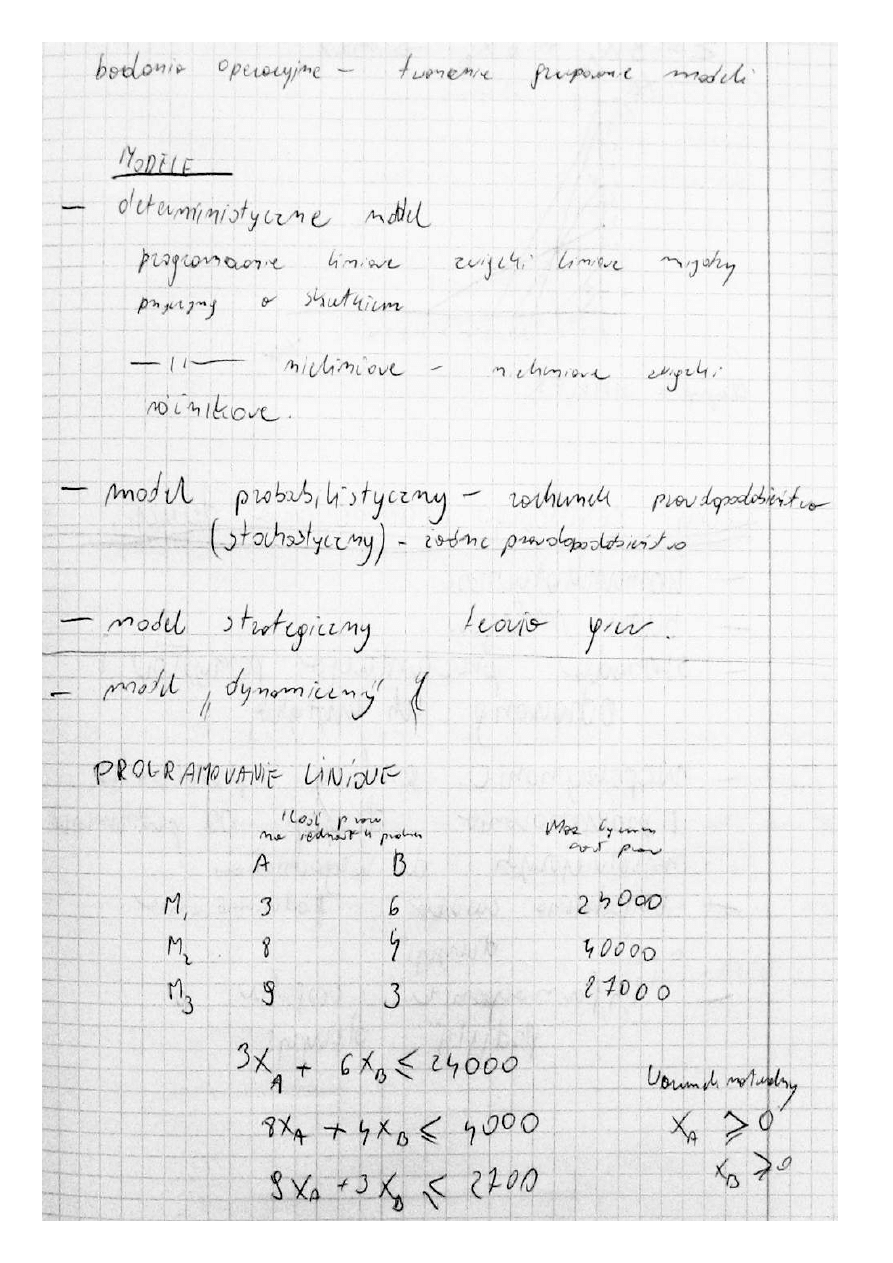 badania operacyjne - tworzenie grupowanie modeli
MODELE
- deterministyczne model
programowanie liniowe związki liniowe między
przyczyną a skutkiem
— 11 — nieliniowe - nieliniowe związki
różniczkowe.
- model probabilistyczny - rachunek prawdopodobieństwa
(stochastyczny) - różne prawdopodobieństwo
- model strategiczny teoria gier.
- model „dynamiczny"
PROGRAMOWANIE LINIOWE
Ilość prac
na jednostk produ
A B
M₁ 3 6 24000
M₂ 8 4 40000
M₃ 9 3 27000
3X_A + 6X_B ≤ 24000
Warunek
8X_A + 4X_B ≤ 4000 X_A ≥ 0
X_B ≥ 0
9X_A + 3X_B ≤ 2700